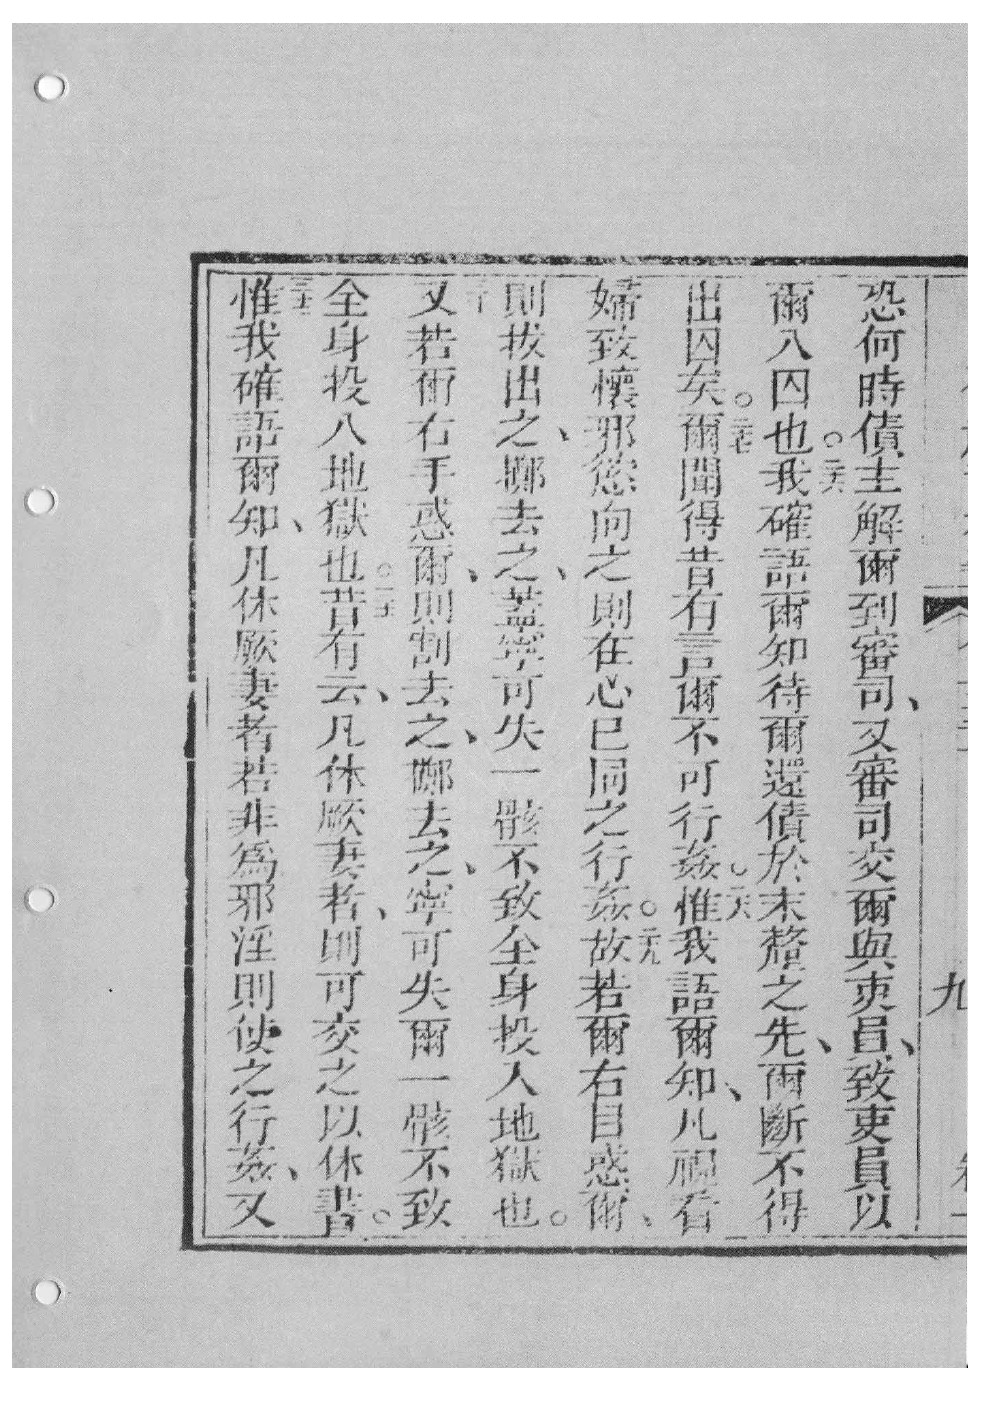 恐何時債主解爾到審司、又審司交爾與吏員、致吏員以
爾入囚也。二六我確語爾知待爾還債於末釐之先、爾斷不得
出囚矣。二七爾聞得昔有言爾不可行姦。二八惟我語爾知、凡視看
婦致懷邪慾向之則在心已同之行姦。二九故若爾右目惑爾、
則拔出之、擲去之、蓋寧可失一骸不致全身投入地獄也。
三十又若爾右手惑爾、則割去之、擲去之、寧可失爾一骸不致
全身投入地獄也。三一昔有云、凡休厥妻者、則可交之以休書。
三二惟我確語爾知、凡休厥妻者若非為邪淫則使之行姦、又
九